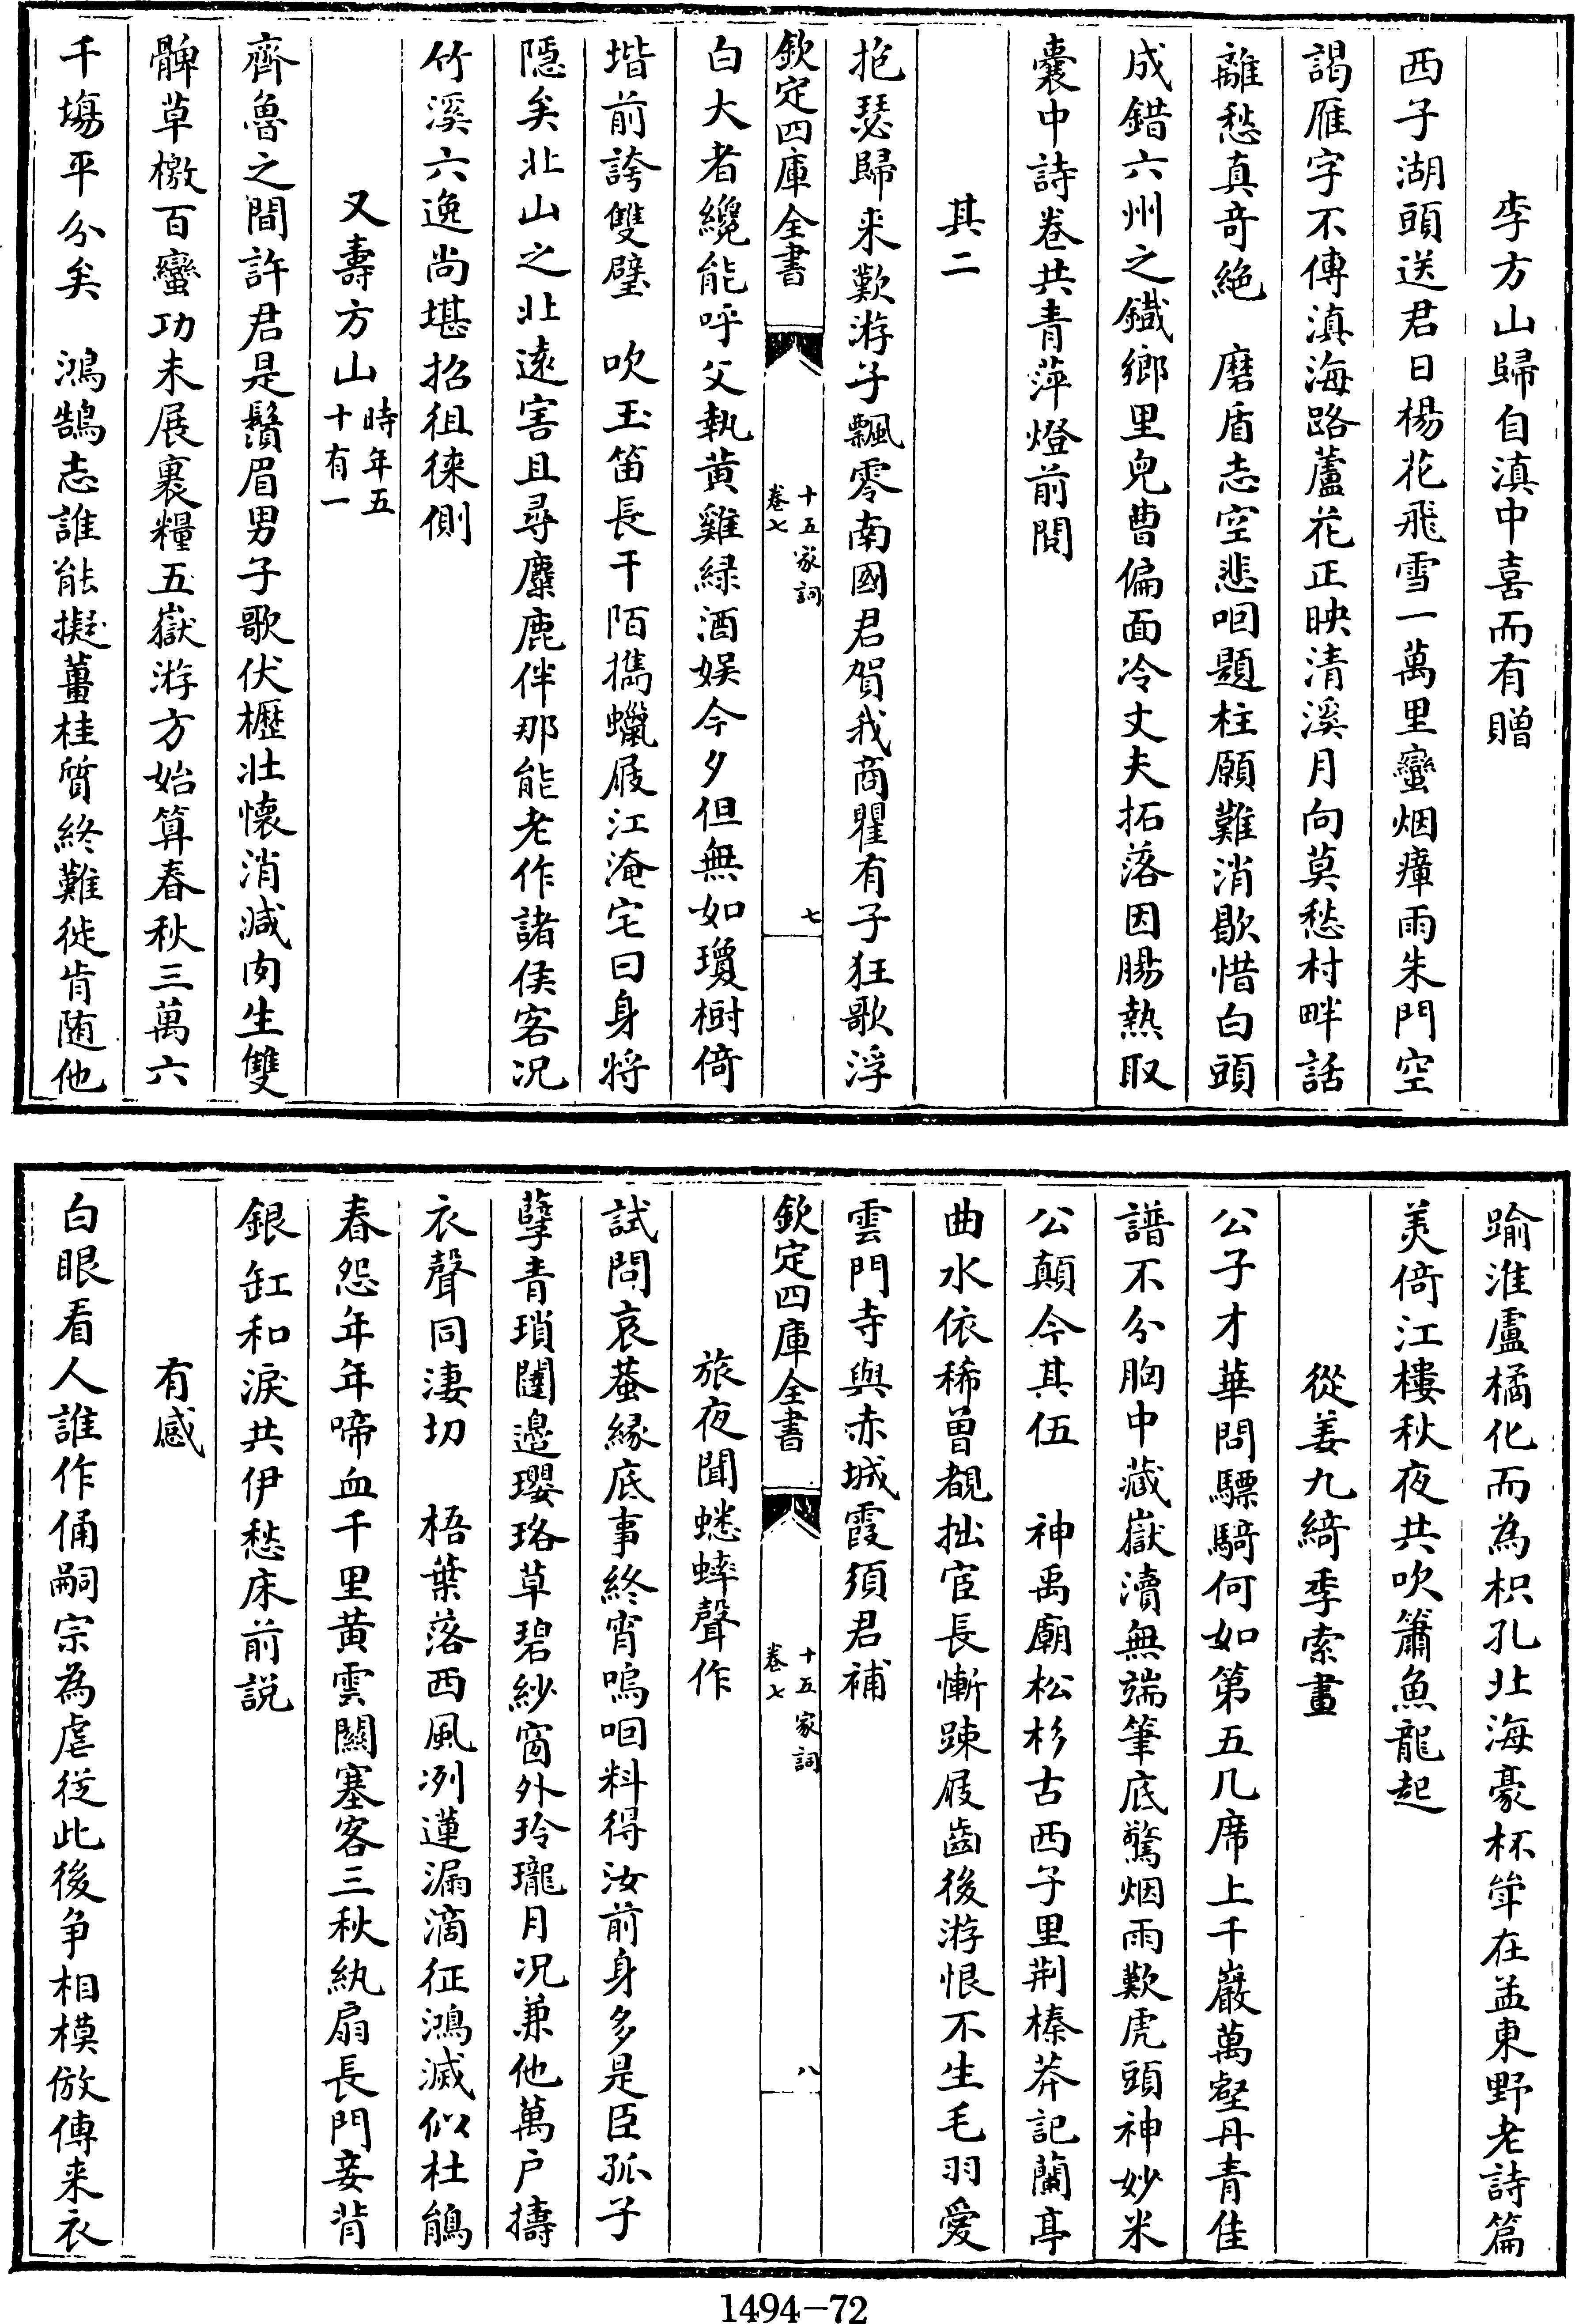 李方山歸自滇中喜而有贈
西子湖頭送君日楊花飛雪一萬里蠻烟瘴雨朱門空
謁雁字不傳滇海路蘆花正映清溪月向莫愁村畔話
離愁真奇絶　磨盾志空悲咽題柱願難消歇惜白頭
成錯六州之鐵鄉里兒曹偏面冷丈夫拓落因腸熱取
囊中詩卷共青萍燈前閲
其二
抱瑟歸来歎游子飄零南國君賀我商瞿有子狂歌浮
欽定四庫全書
十五家詞
卷七
七
白大者纔能呼父執黄雞緑酒娱今夕但無如瓊樹倚
堦前誇雙璧　吹玉笛長干陌攜蠟屐江淹宅曰身将
隠矣北山之北遠害且尋麋鹿伴那能老作諸侯客况
竹溪六逸尚堪招徂徠側
又壽方山時年五
十有一
齊魯之間許君是鬚眉男子歌伏櫪壯懷消减肉生雙
髀草檄百蠻功未展裹糧五嶽游方始算春秋三萬六
千塲平分矣　鴻鵠志誰能擬薑桂質終難徙肯随他
踰淮盧橘化而為枳孔北海豪杯斝在孟東野老詩篇
美倚江樓秋夜共吹簫魚龍起
從姜九綺季索畫
公子才華問驃騎何如第五几席上千巖萬壑丹青佳
譜不分胸中藏嶽瀆無端筆底驚烟雨歎虎頭神妙米
公顛今其伍　神禹廟松杉古西子里荆榛莽記蘭亭
曲水依稀曽覩拙宦長慚踈屐齒後游恨不生毛羽愛
雲門寺與赤城霞須君補
欽定四庫全書
十五家詞
卷七
八
旅夜聞蟋蟀聲作
試問哀蛩緣底事終宵嗚咽料得汝前身多是臣孤子
孽青瑣闥邉瓔珞草碧紗窗外玲瓏月况兼他萬户擣
衣聲同淒切　梧葉落西風冽蓮漏滴征鴻滅似杜鵑
春怨年年啼血千里黄雲關塞客三秋紈扇長門妾背
銀缸和淚共伊愁床前説
有感
白眼看人誰作俑嗣宗為虐從此後争相模倣傳来衣
1494-72